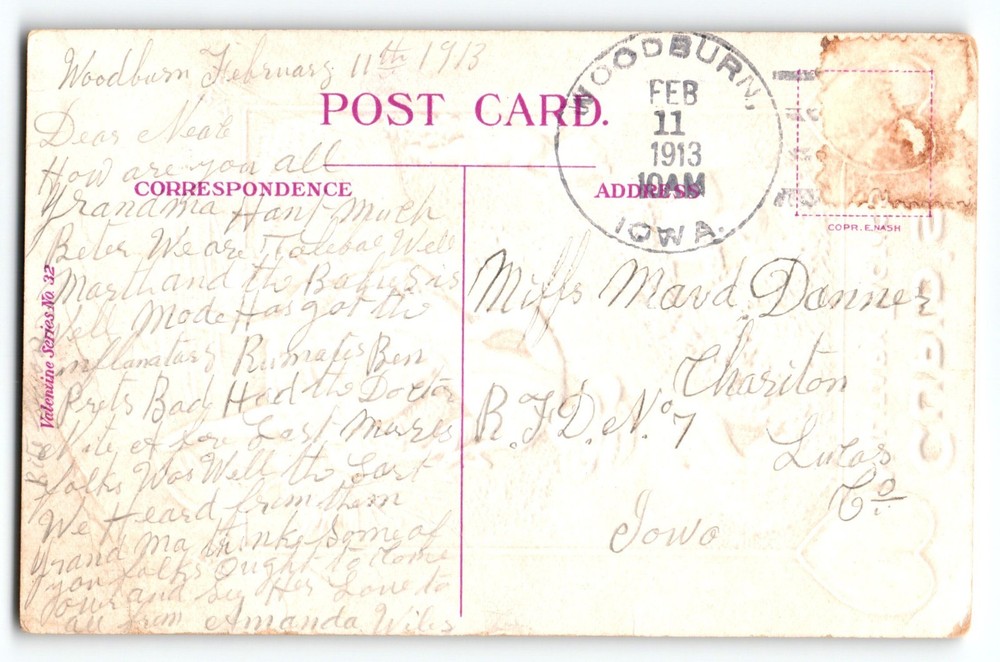 Woodburn February 11th 1913
POST CARD.
Dear Neace
How are you all
CORRESPONDENCE
Grandma Hant Much
Beter We are Tolebae Well
Marth and the Babies is
Well Mode Has got the
inflamatary Rumatis Ben
Prety Bad Had the Doctor
Nite Last
folks Was Well the Last
We Heard from them
Grand Ma thinks Some of
you folks Ought to Come
Over and See Her Love to
all from Amanda Wiles
Valentine Series No. 32
WOODBURN,
FEB
11
1913
10AM
IOWA.
ADDRESS
COPR. E. NASH
Miss Maud Danner
Chariton
R.F.D. No. 7
Lucas
Co.
Iowa